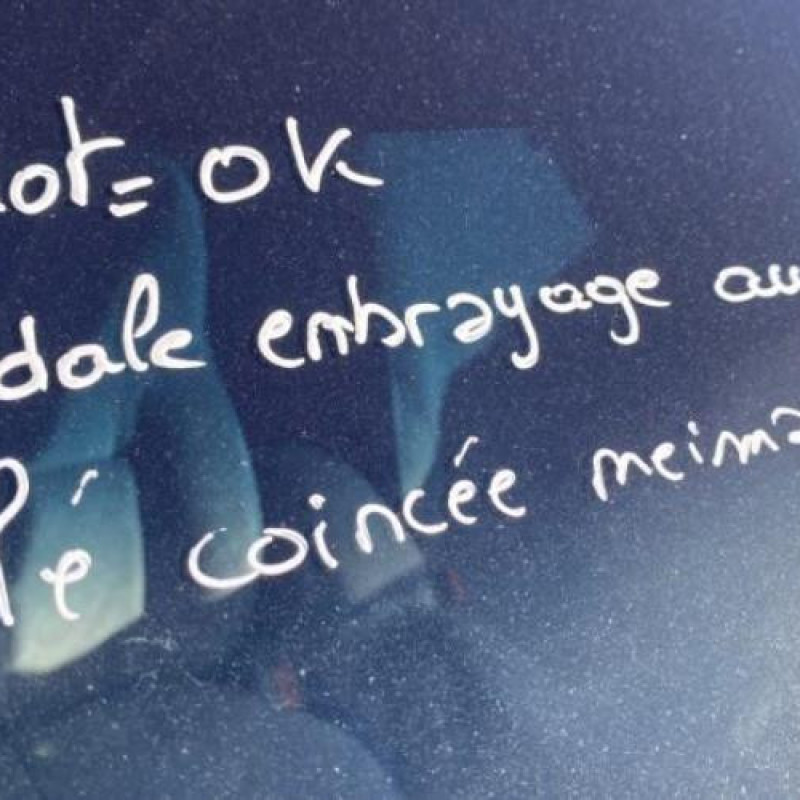 ot= OK
dale embrayage au
lé coincée meima